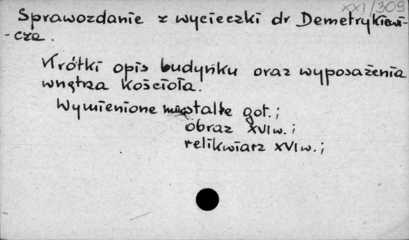 XXI/309
Sprawozdanie z wycieczki dr Demetrykiewi-
-cza.
Krótki opis budynku oraz wyposażenia
wnętrza Kościoła.
Wymienione stalle got.;
obraz XVI w.;
relikwiarz XVI w.;